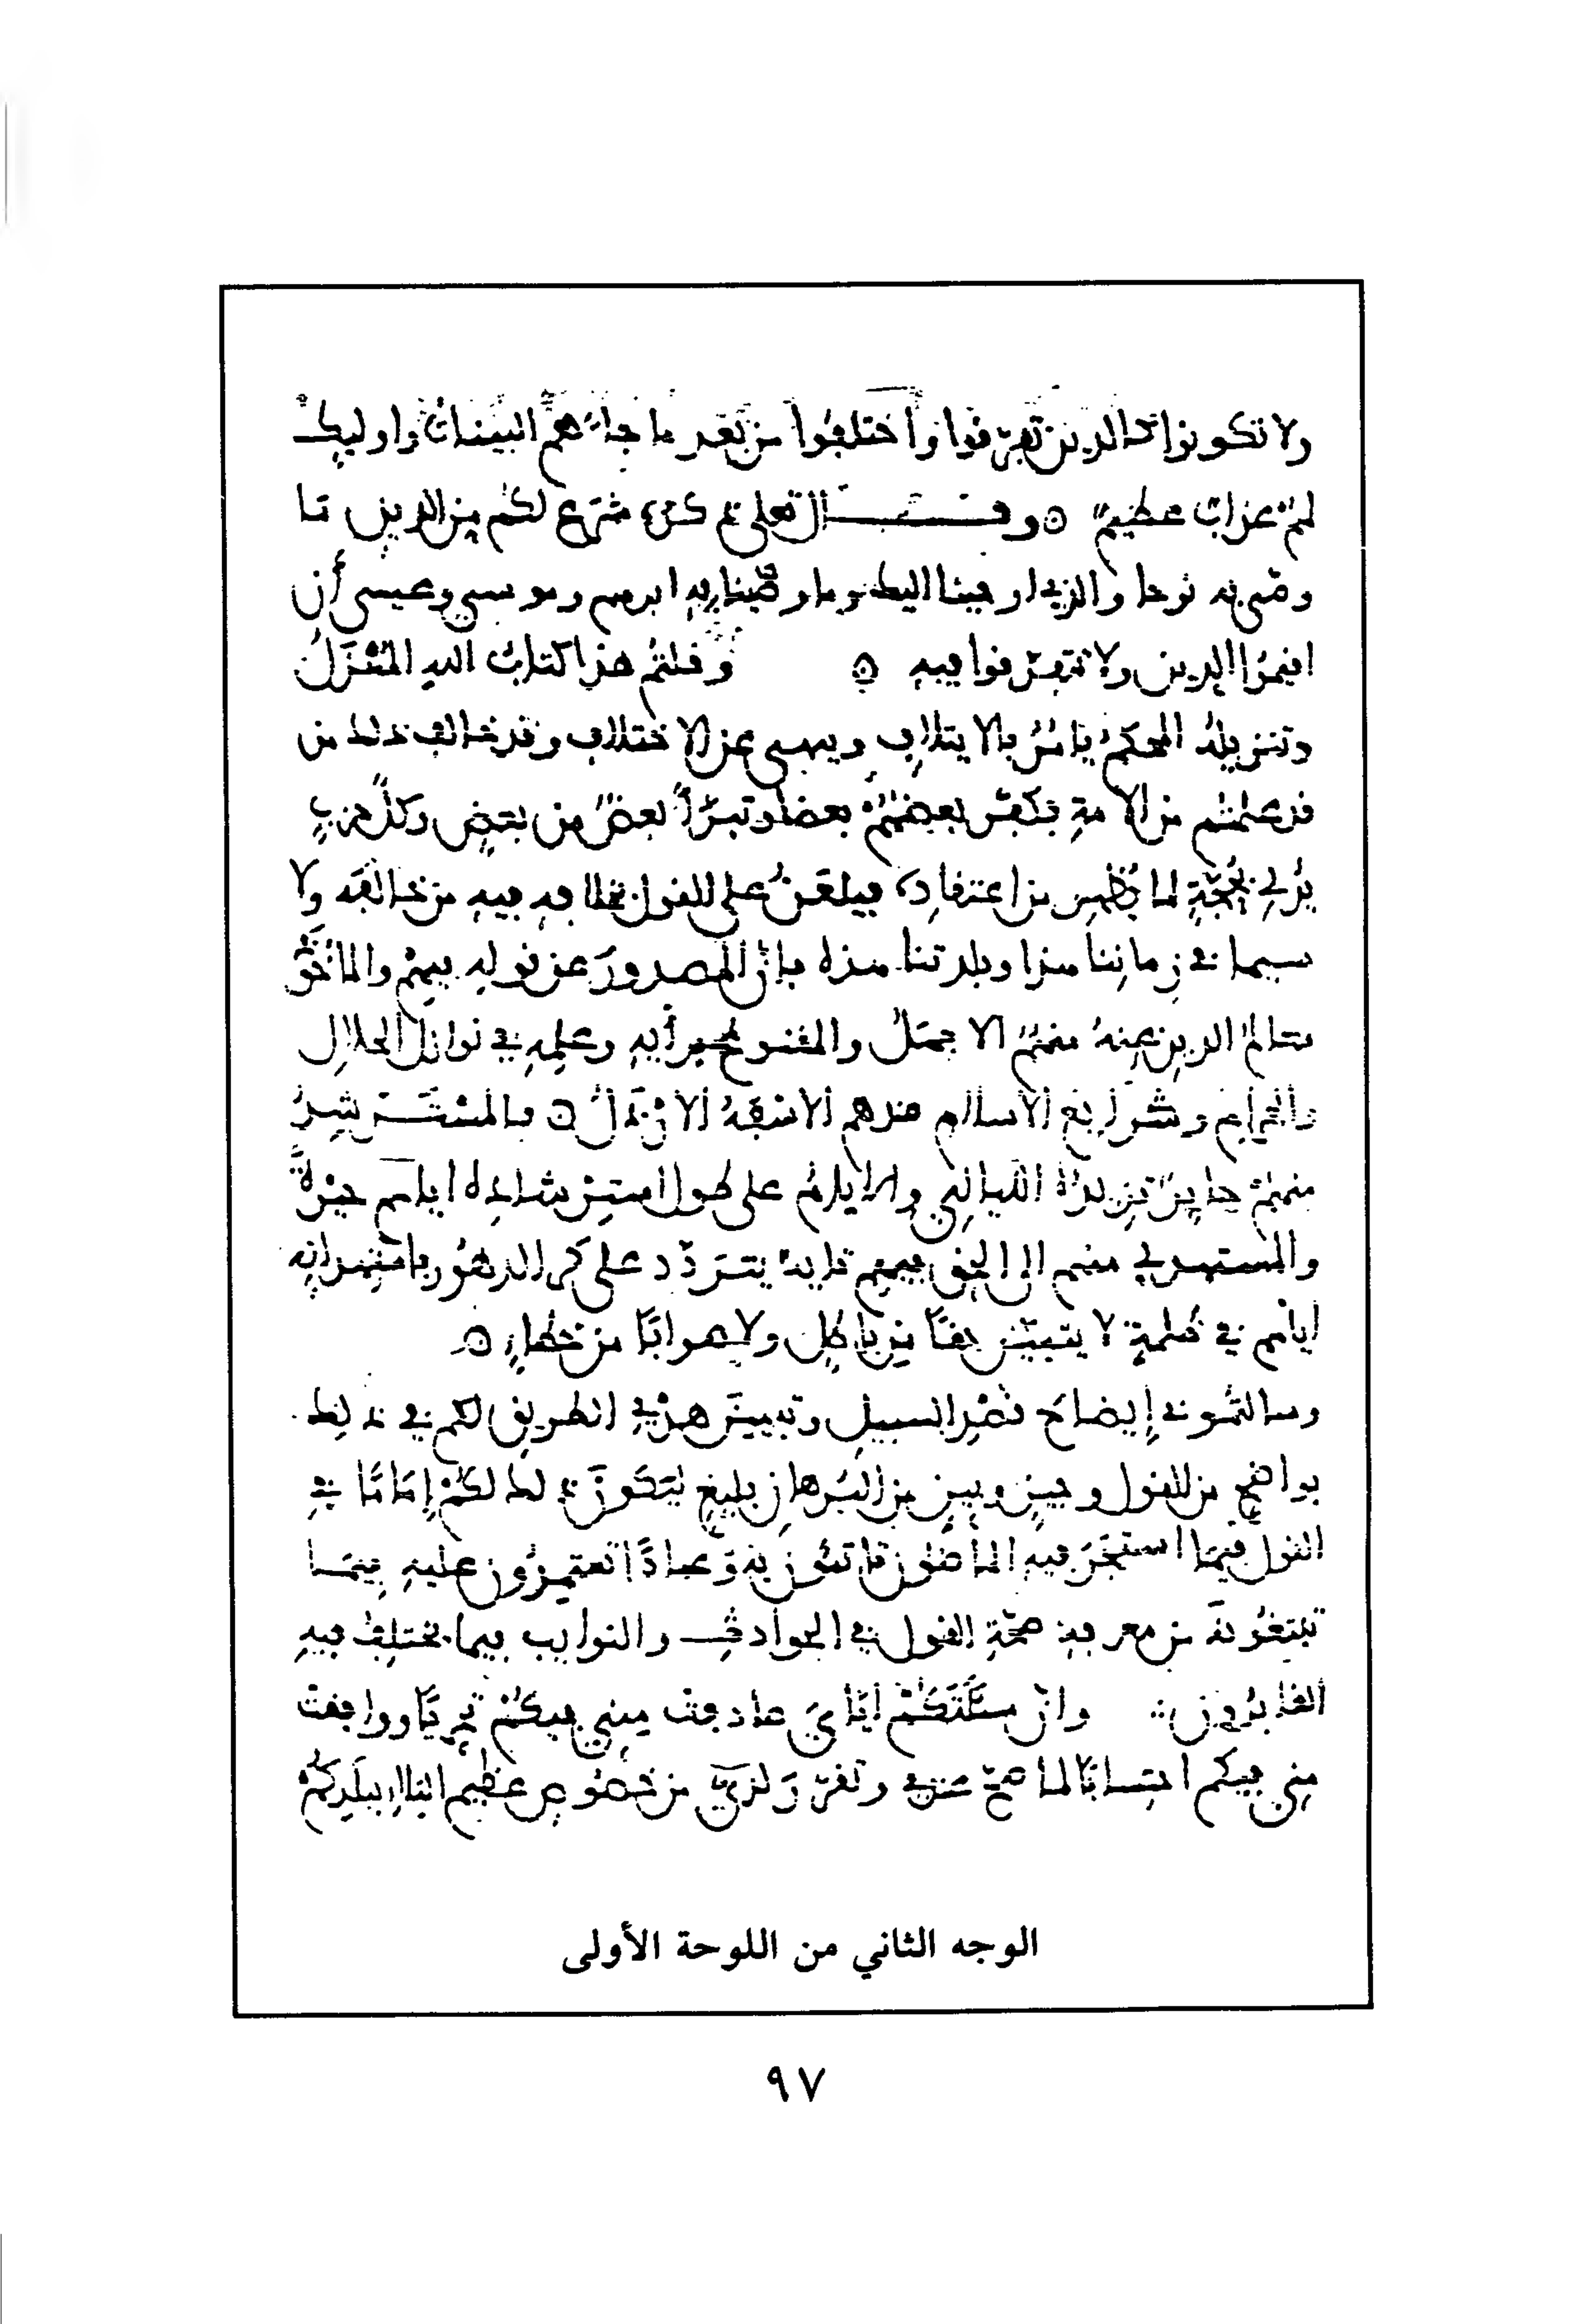 ولا تكونوا كالذين تفرقوا واختلفوا من بعد ما جاءهم البينات واوليك
لهم عذاب عظيم ۝ وقال تعلى ذكره شرع لكم من الدين ما
وصى به نوحا والذي اوحينا اليك وما وصينا به ابرهيم وموسى وعيسى أن
اقيموا الدين ولا تتفرقوا فيه ۝ وقلتم هذا كتاب الله المنزل
وتنزيله المحكم يامر بالايتلاف وينهى عن الاختلاف وقد خالف ذلك من
قد علمتم من الامة فكفر بعضهم بعضا وتبرأ بعض من بعض وكل حزب
يدلي بحجة لما يظهر من اعتقاده فيلعن على القول بخلافه فيه من خالفه ولا
سيما في زماننا هذا وبلدتنا هذه فإن المصدور عن قوله فيهم والماخوذ
معالم الدين عنه منهم الاجهل والمقنوع برأيه وعلمه في نوازل الحلال
والحرام وشرايع الاسلام عندهم الاسفه الارذل ۝ فالمسترشد
منهم حاير تزيده الليالي والايام على طول استرشاده اياهم حيرة
والمستهدي منهم الى الحق فيهم تايه يتردد على كر الدهور باستهدايه
اياهم في ظلمة لا يتبين حقا من باطل ولا صوابا من خطاء ۝
وسالتموني إيضاح قصد السبيل وتبيين هدي الطريق لكم في ذلك
بواضح من القول وجيز وبين من البرهان بليغ ليكون ذلك لكم إماما في
القول فيما اشتجر فيه الماضون تاتمون به وعمادا تعتمدون عليه فيما
تبتغونه من معرفة صحة القول في الحوادث والنوايب فيما يختلف فيه
الغابرون وان مسئلتكم اياي صادفت مني فيكم تحريا ووافقت
مني فيكم احتسابا لما صح عندي وتقرر لدي من خصوص عظيم البلاء ببلدكم
الوجه الثاني من اللوحة الأولى
٩٧